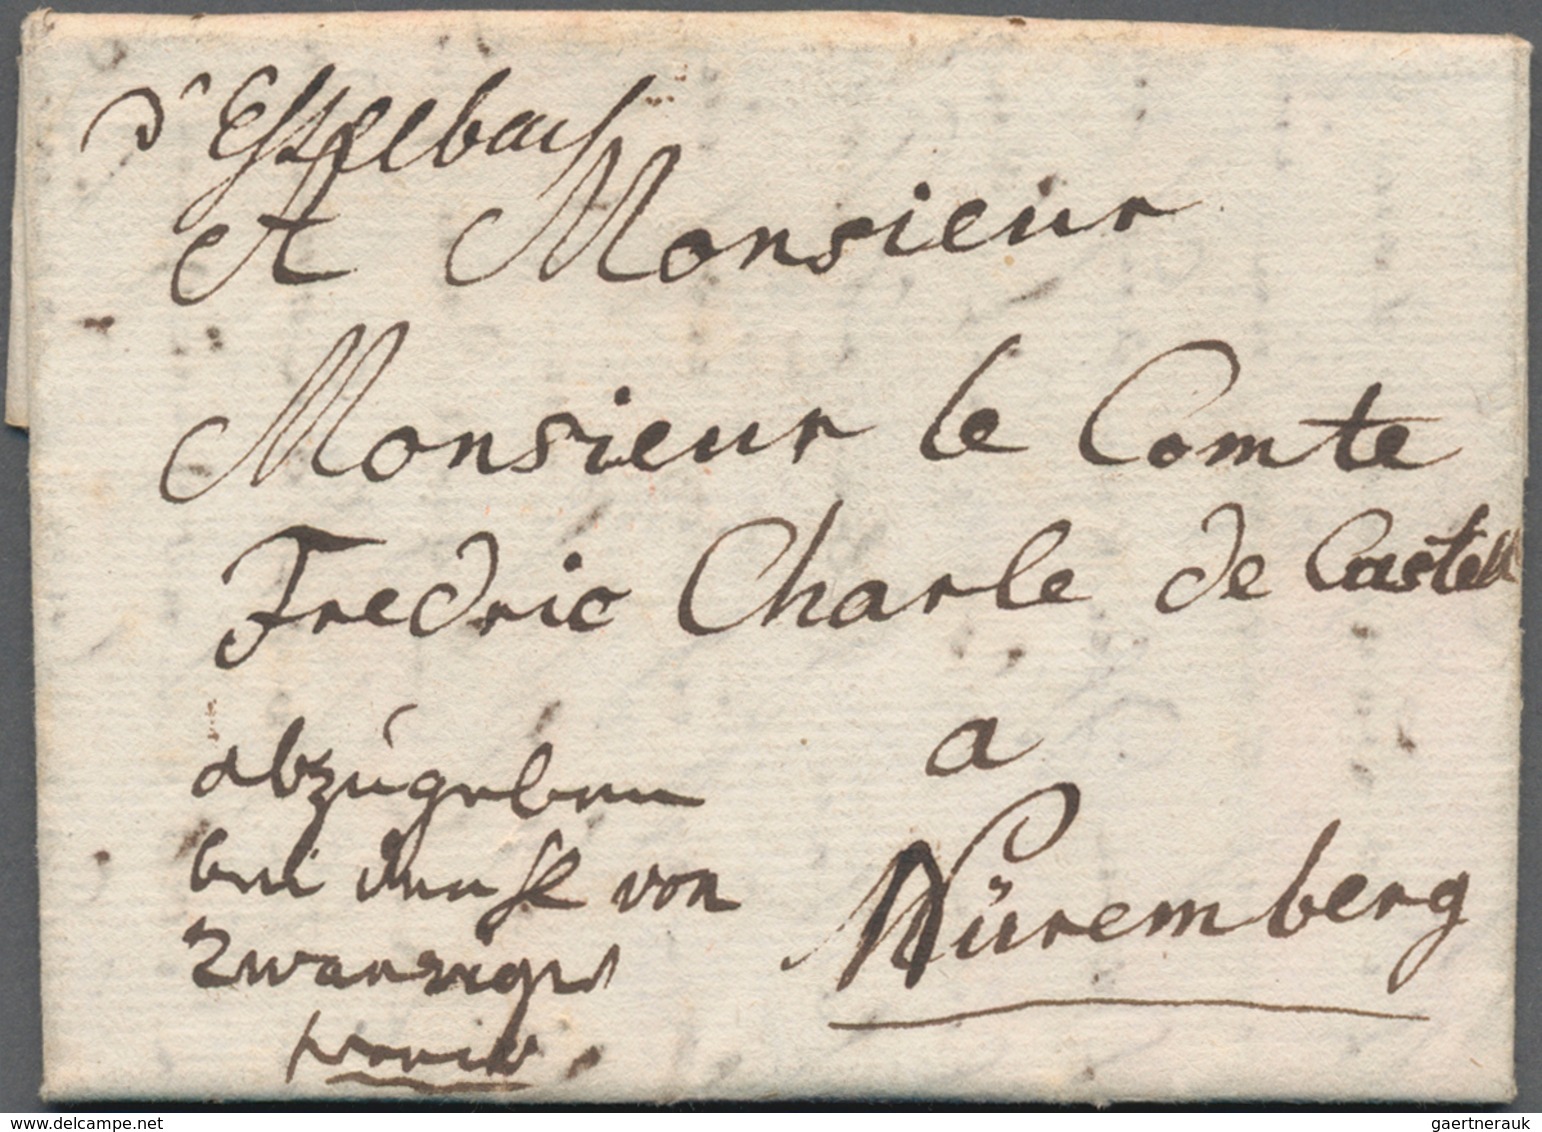 d'Esselbach
A Monsieur
Monsieur le Comte
Fredric Charle de Castell
a
Nüremberg
abzugeben
bei von
gaertnerauk